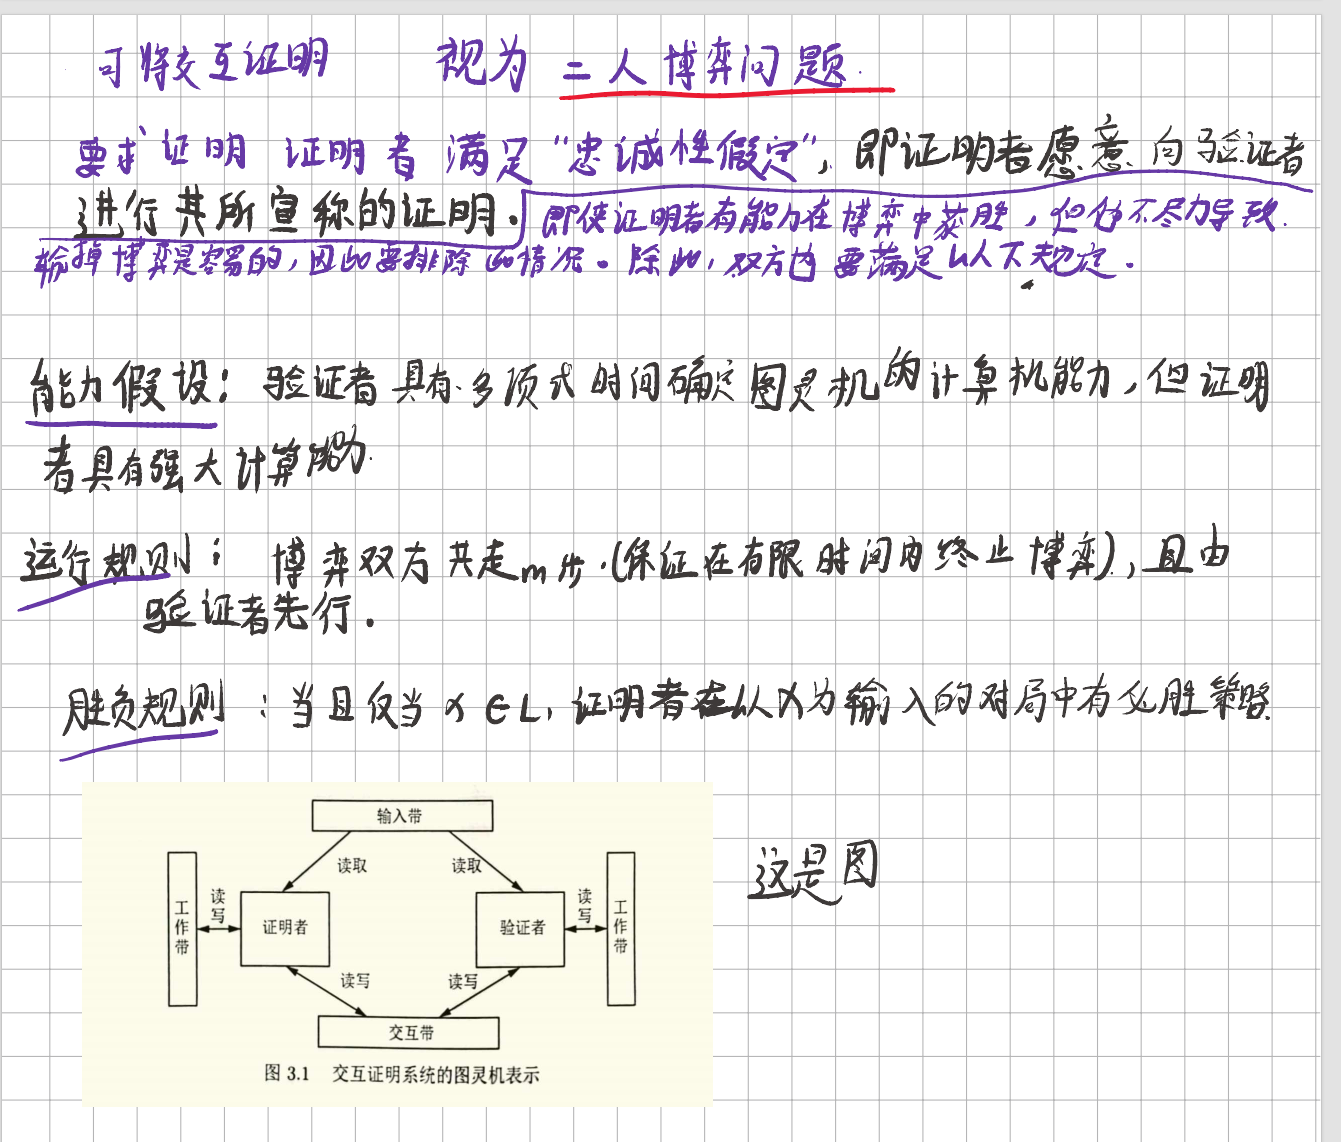 可将交互证明 视为 二人博弈问题.
要求证明 证明者 满足“忠诚性假定”，即证明者愿意向验证者
进行其所宣称的证明。即使证明者有能力在博弈中获胜，但他不尽力导致
输掉博弈是容易的，因此要排除此情况。除此，双方内要满足以下规定。
能力假设：验证者具有多项式时间确定图灵机的计算机能力，但证明
者具有强大计算能力.
运行规则： 博弈双方共走m步.(保证在有限时间内终止博弈)，且由
验证者先行。
胜负规则：当且仅当 x∈L，证明者在以x为输入的对局中有必胜策略
这是图
输入带
读取 读取
工作带 读写 证明者 验证者 读写 工作带
读写 读写
交互带
图 3.1 交互证明系统的图灵机表示